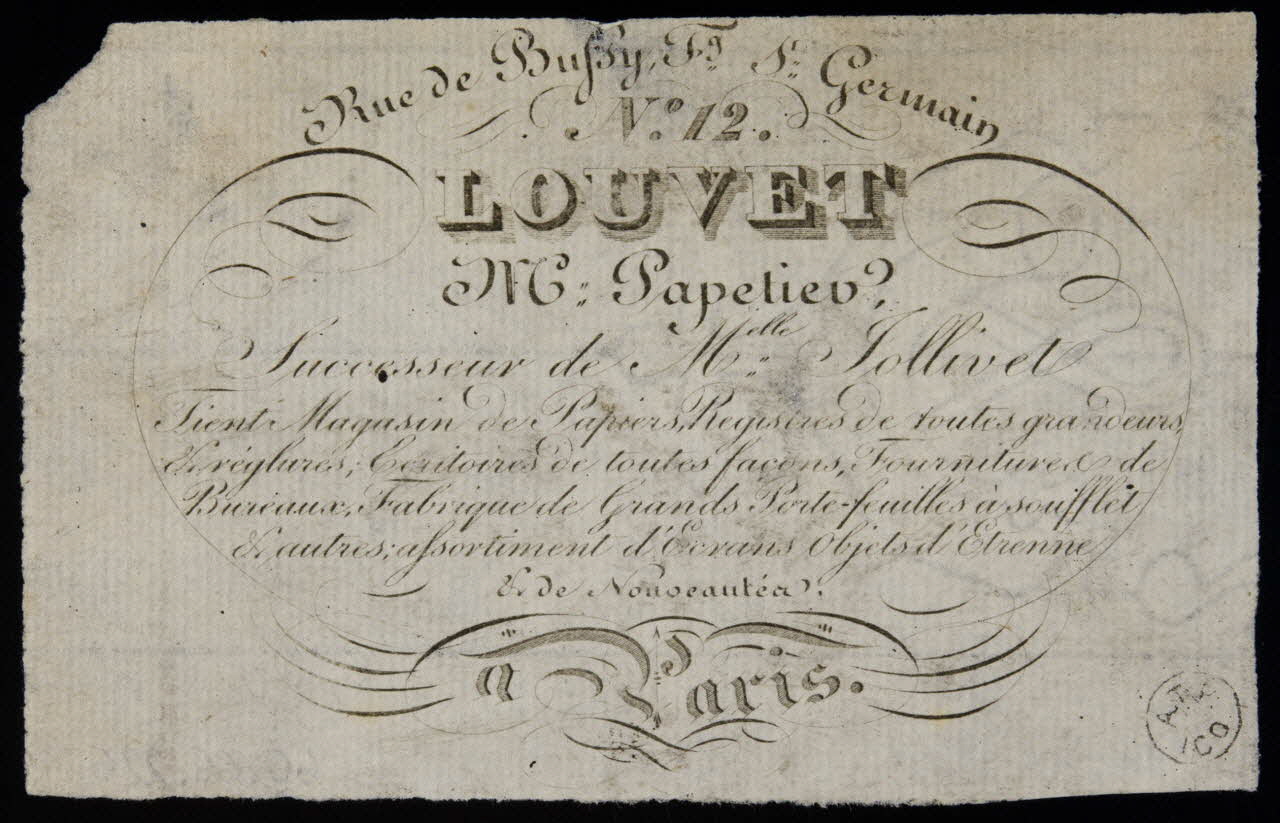 Rue de Bussy, Fg. St. Germain
N.º 12.
LOUVET
Md. Papetier,
Successeur de Melle. Jollivet
Tient Magasin de Papiers, Registres de toutes grandeurs,
& réglures; Ecritoires de toutes façons, Fournitures de
Bureaux, Fabrique de Grands Porte-feuilles à soufflet
& autres; assortiment d'Ecrans Objets d'Etrenne
& de Nouveautés.
a Paris.